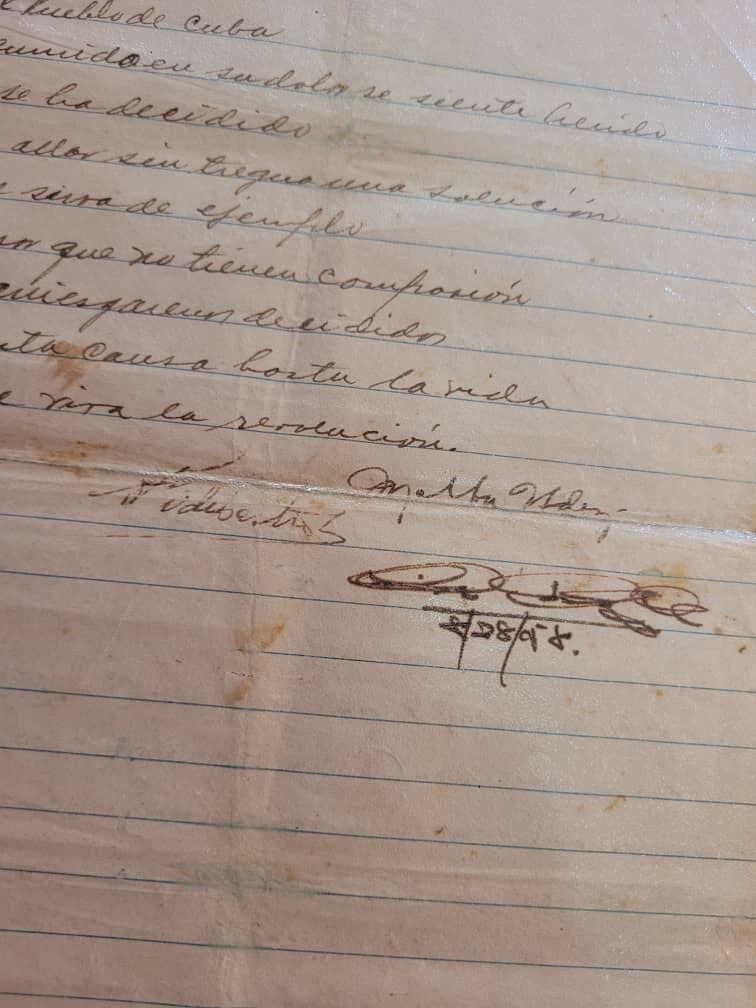 Pueblo de Cuba
sumido en su dolor se siente herido
se ha decidido
allar sin tregua una solución
sirva de ejemplo
que no tienen compasión
arriesgaremos decididos
esta causa hasta la vida
viva la revolución.
Fidel Castro
2/28/58.